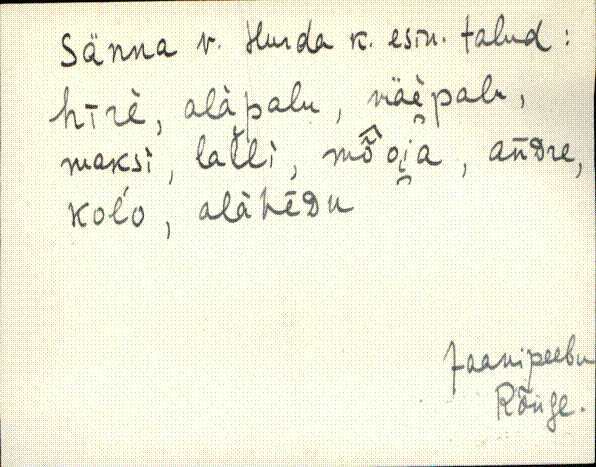 Sänna v. Hurda k. esin. talud:
hīrè, alàpalu, mäè̯palu,
maksì, lal̆lì, mȭoi̯a, an̄Dre,
kolo, alàhēDu
Jaanipeebu
Rõuge.